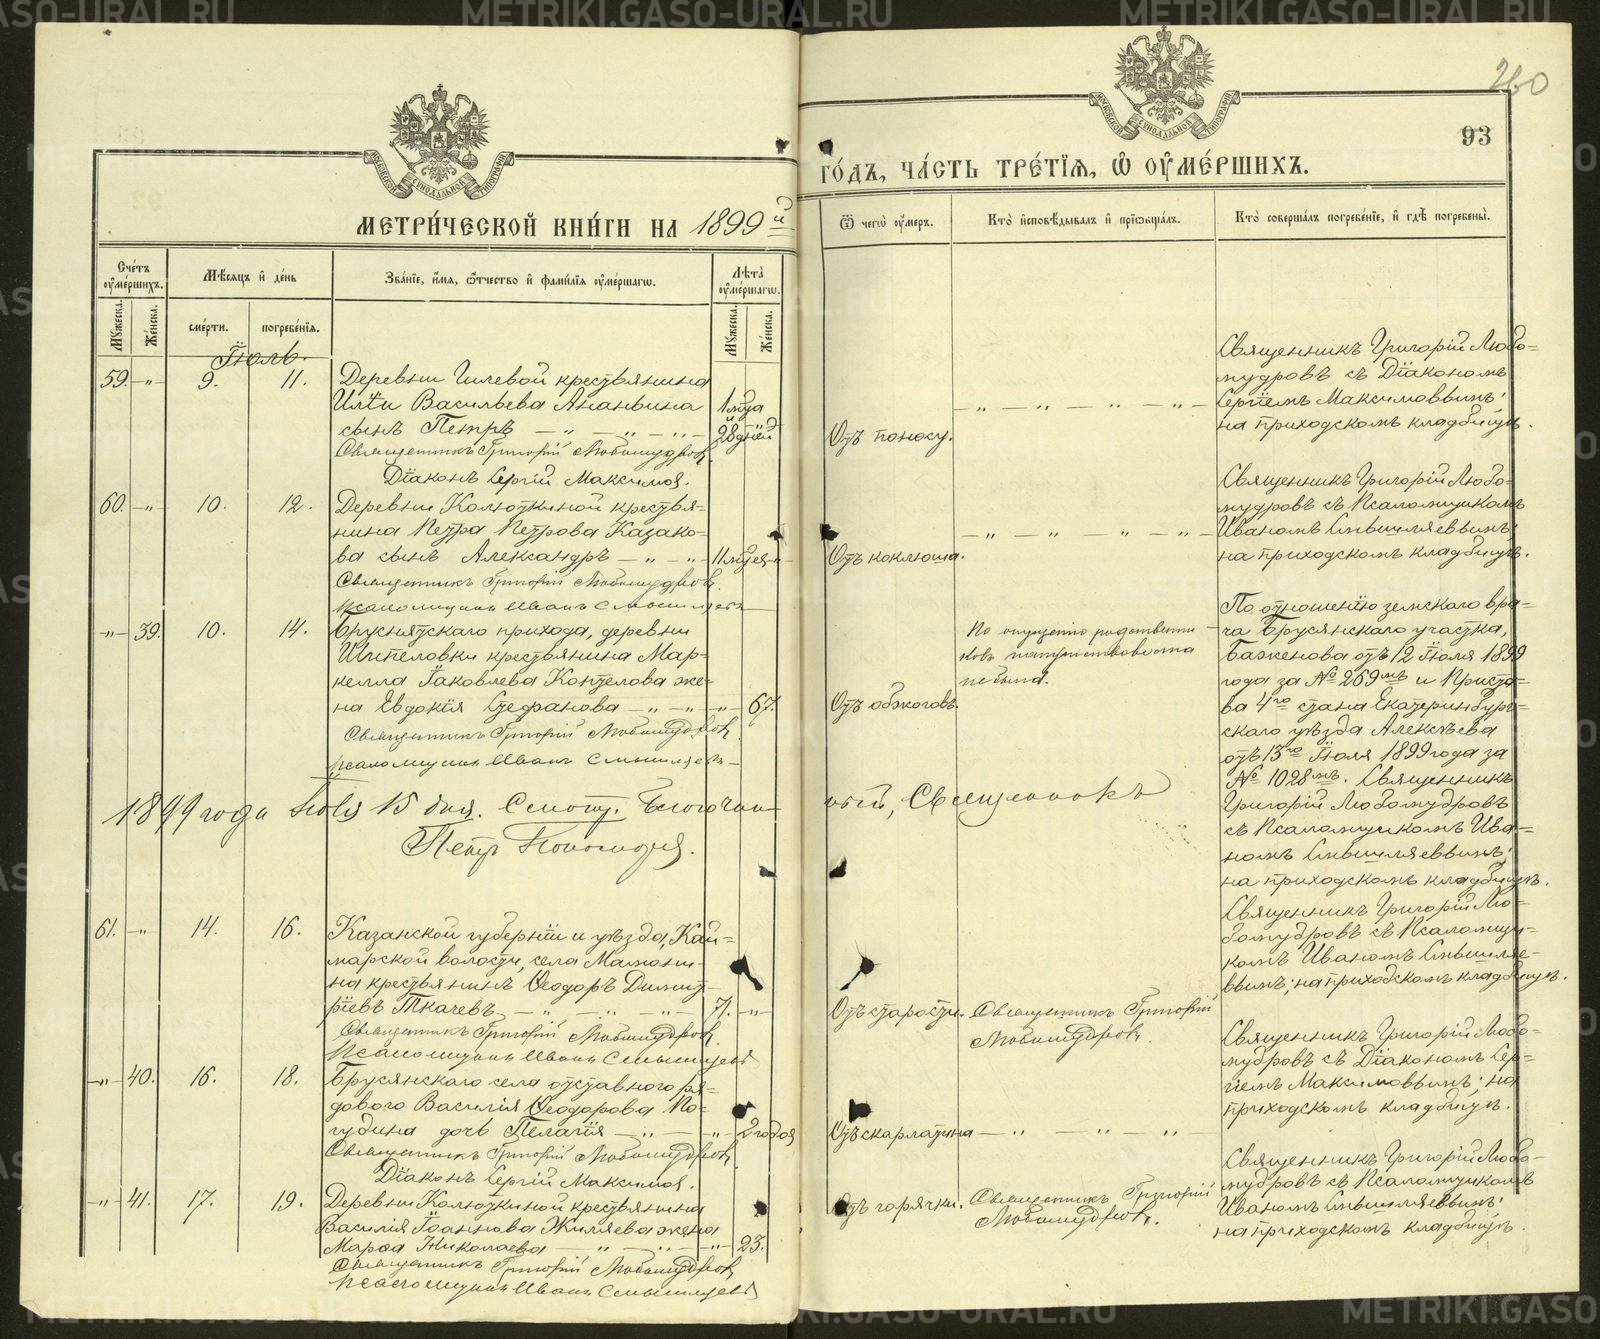 МЕТРИ́ЧЕСКОЙ КНИ́ГИ НА 1899 й
Счéтъ ᲂу҆мéршихъ.
Мѣ́сѧцъ и҆ дéнь
Звáнїе, и҆́мѧ, ѻ҆́тчество и҆ фами́лїѧ ᲂу҆мéршагѡ.
Лѣ́та ᲂу҆мéршагѡ.
Мꙋ́жеска.
Жéнска.
смéрти.
погребéнїѧ.
Мꙋ́жеска.
Жéнска.
Іюль.
59. -"- 9. 11. Деревни Гилевой крестьянина
Илiи Васильева Ананьина 1 мѣца
сынъ Петръ — " — " — " — и 28 дней
Священникъ Григорій Любомудровъ.
Діаконъ Сергій Максимов.
60. -"- 10. 12. Деревни Колюткиной крестья=
нина Петра Петрова Казако=
ва сынъ Александръ — " — " — 11 мѣсяц -"-
Священникъ Григорій Любомудровъ.
Псаломщикъ Иванъ Смышляевъ
-"- 39. 10. 14. Бруснятскаго прихода, деревни
Шипеловки крестьянина Мар=
келла Іаковлева Коптелова же=
на Евдокія Стефанова — " — " — " — 67.
Священникъ Григорій Любомудровъ.
Псаломщикъ Иванъ Смышляевъ
1899 года Іюля 15 дня. Смотр. Благочин
Петръ
61. -"- 14. 16. Казанской губерніи и уѣзда, Кай=
марской волости, села Мамони-
на крестьянинъ Ѳеодоръ Димит=
ріевъ Ткачевъ — " — " — " — 71. -"-
Священникъ Григорій Любомудровъ.
Псаломщикъ Иванъ Смышляевъ
-"- 40. 16. 18. Брусянскаго села отставного ря=
дового Василія Ѳеодорова По=
гудина дочь Пелагія — " — " — 2 года
Священникъ Григорій Любомудровъ
Діаконъ Сергій Максимов.
-"- 41. 17. 19. Деревни Колюткиной крестьянина
Василія Іоаннова Жиляева жена
Марѳа Николаева — " — " — " — 23.
Священникъ Григорій Любомудровъ
Псаломщикъ Иванъ Смышляевъ
260
93
ГÓДЪ, ЧÁСТЬ ТРÉТЇѦ, Ѡ҆ ОУ҆МÉРШИХЪ.
Ѿ чегѡ̀ ᲂу҆́меръ.
Ктò и҆сповѣ́дывалъ и҆ прїѡбщáлъ.
Ктò совершáлъ погребéнїе, и҆ гдѣ̀ погребены̀.
Отъ поносу.
— " — " — " — " —
Священникъ Григорій Любо=
мудровъ съ Діакономъ
Сергіемъ Максимовымъ;
на приходскомъ кладбищѣ.
Отъ коклюша.
— " — " — " — " —
Священникъ Григорій Любо=
мудровъ съ Псаломщикомъ
Иваномъ Смышляевымъ;
на приходскомъ кладбищѣ.
Отъ обжоговъ.
По опущенію родственни
ковъ напутствована
не была.
По отношенію земскаго вра=
ча Брусянскаго участка,
Баженова отъ 12 Іюля 1899
года за № 269мъ и Приста=
ва 4го стана Екатеринбург=
скаго уѣзда Алексѣева
отъ 13го Іюля 1899 года за
№ 1028мъ. Священникъ
Григорій Любомудровъ
съ Псаломщикомъ Ива=
номъ Смышляевымъ;
на приходскомъ кладбищѣ.
ный, Священникъ
Отъ старости.
Священникъ Григорій
Любомудровъ.
Священникъ Григорій Лю=
бомудровъ съ Псаломщи=
комъ Иваномъ Смышляе=
вымъ; на приходскомъ кладбищѣ.
Отъ скарлатина
— " — " — "
Священникъ Григорій Любо=
мудровъ съ Діакономъ Сер=
гіемъ Максимовымъ; на
приходскомъ кладбищѣ.
Отъ горячки.
Священникъ Григорій
Любомудровъ.
Священникъ Григорій Любо=
мудровъ съ Псаломщикомъ
Иваномъ Смышляевымъ;
на приходскомъ кладбищѣ.
METRIKI.GASO-URAL.RU